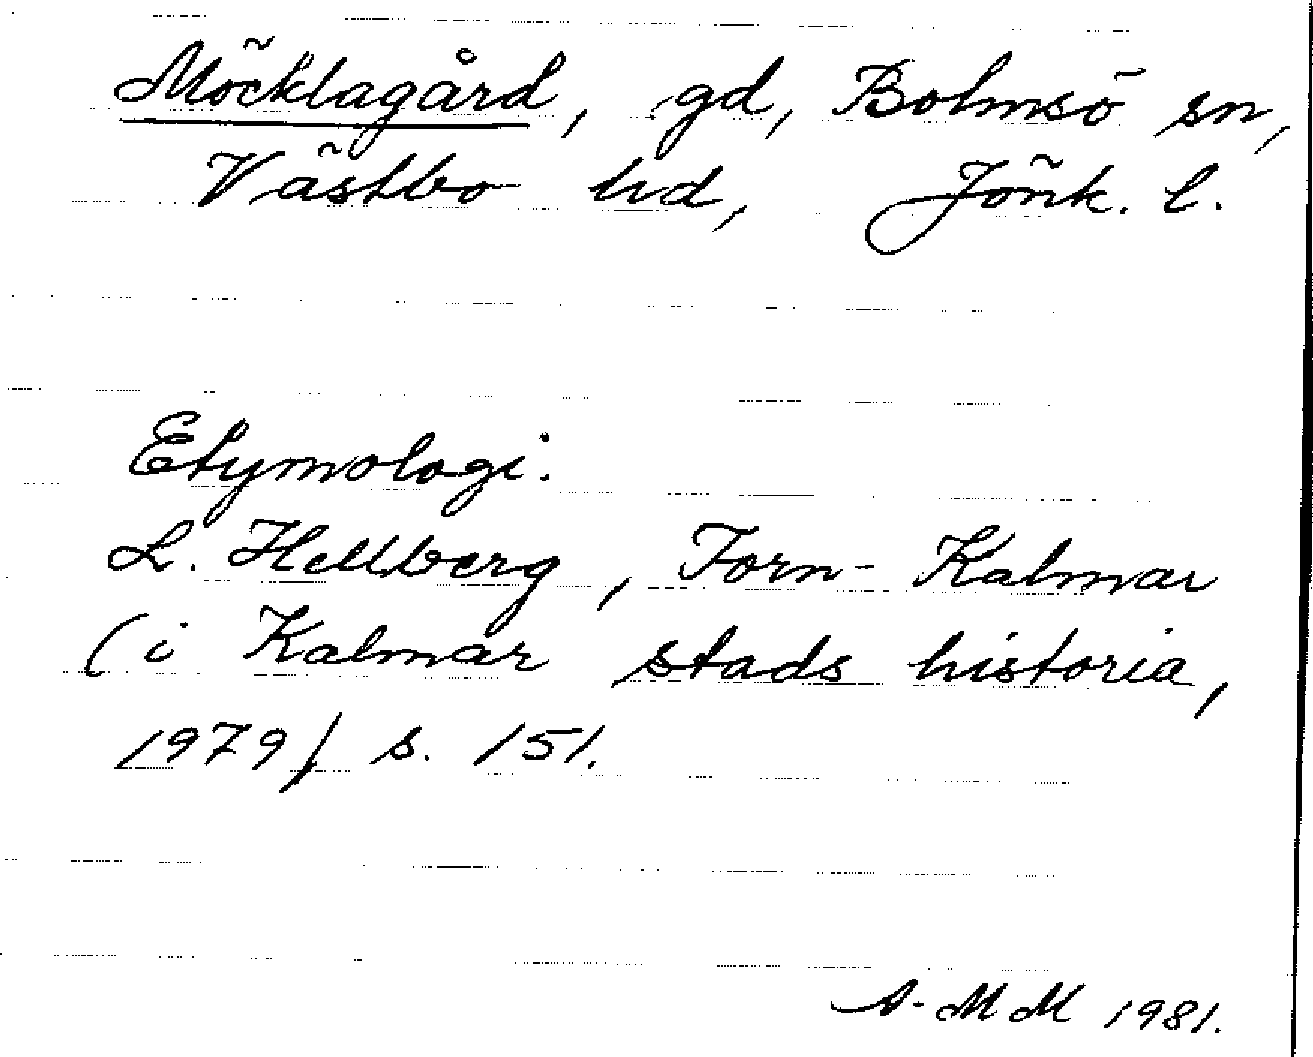 Möcklagård, gd, Bolmsö sn,
Västbo hd, Jönk. l.
Etymologi:
L. Hellberg, Forn-Kalmar
(i Kalmar stads historia,
1979) s. 151.
A-MM 1981.